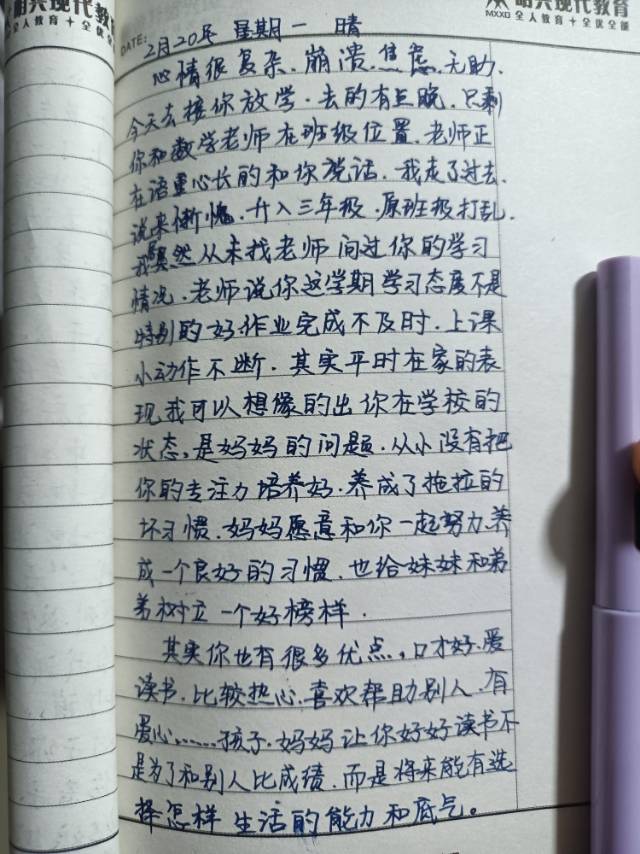 明兴现代教育
全人教育+全优全能
MXXD 全人教育+全优全能
明兴现代教育
DATE: 2月20号 星期一 晴
心情很复杂、崩溃、焦虑、无助.
今天去接你放学.去的有点晚.只剩
你和数学老师在班级位置.老师正
在语重心长的和你说话.我走了过去.
说来惭愧.升入三年级.原班级打乱.
我竟然从未找老师问过你的学习
情况.老师说你这学期学习态度不是
特别的好作业完成不及时.上课
小动作不断.其实平时在家的表
现我可以想像的出你在学校的
状态,是妈妈的问题.从小没有把
你的专注力培养好.养成了拖拉的
坏习惯.妈妈愿意和你一起努力.养
成一个良好的习惯.也给妹妹和弟
弟树立一个好榜样.
其实你也有很多优点,口才好.爱
读书.比较热心.喜欢帮助别人.有
爱心……孩子.妈妈让你好好读书不
是为了和别人比成绩.而是将来能有选
择怎样生活的能力和底气。